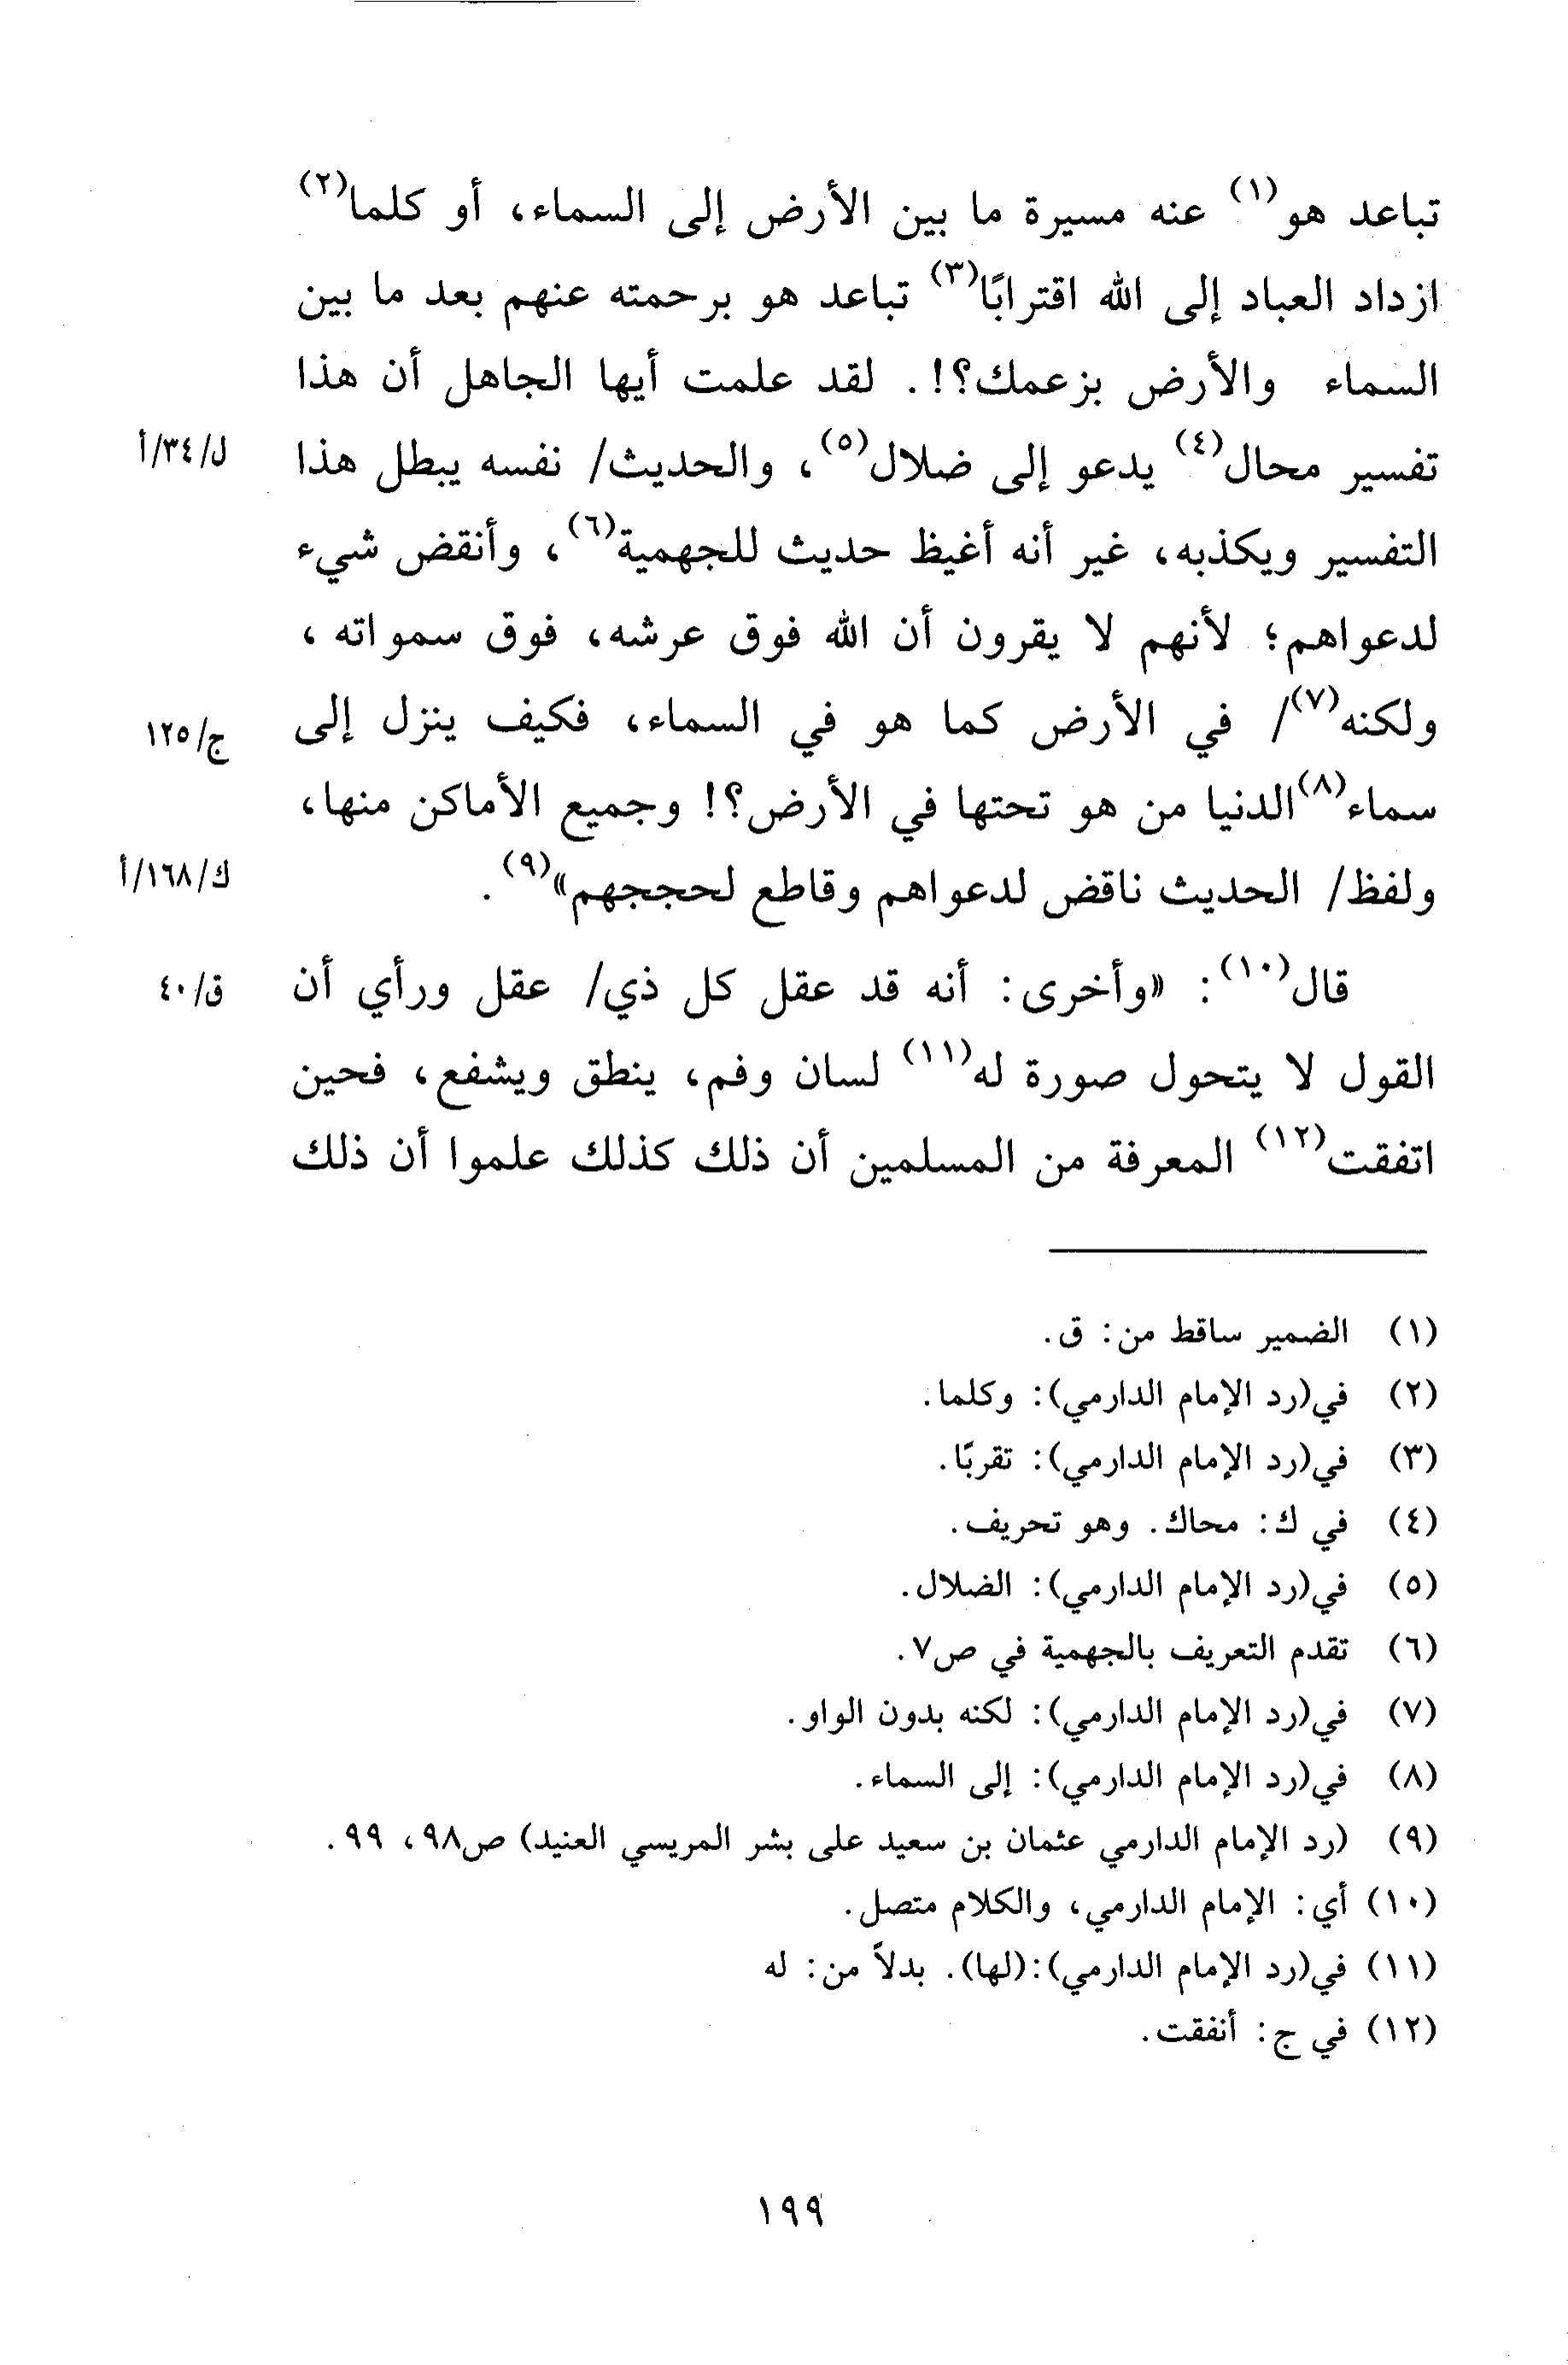 تباعد هو(١) عنه مسيرة ما بين الأرض إلى السماء، أو كلما(٢)
ازداد العباد إلى الله اقترابًا(٣) تباعد هو برحمته عنهم بعد ما بين
السماء والأرض بزعمك؟!. لقد علمت أيها الجاهل أن هذا
تفسير محال(٤) يدعو إلى ضلال(٥)، والحديث/ نفسه يبطل هذا
ل/٣٤/أ
التفسير ويكذبه، غير أنه أغيظ حديث للجهمية(٦)، وأنقض شيء
لدعواهم؛ لأنهم لا يقرون أن الله فوق عرشه، فوق سمواته،
ولكنه(٧)/ في الأرض كما هو في السماء، فكيف ينزل إلى
ج/١٢٥
سماء(٨) الدنيا من هو تحتها في الأرض؟! وجميع الأماكن منها،
ولفظ/ الحديث ناقض لدعواهم وقاطع لحججهم»(٩).
ك/١٦٨/أ
قال(١٠): «وأخرى: أنه قد عقل كل ذي/ عقل ورأي أن
ق/٤٠
القول لا يتحول صورة له(١١) لسان وفم، ينطق ويشفع، فحين
اتفقت(١٢) المعرفة من المسلمين أن ذلك كذلك علموا أن ذلك
(١) الضمير ساقط من: ق.
(٢) في(رد الإمام الدارمي): وكلما.
(٣) في(رد الإمام الدارمي): تقربًا.
(٤) في ك: محاك. وهو تحريف.
(٥) في(رد الإمام الدارمي): الضلال.
(٦) تقدم التعريف بالجهمية في ص٧.
(٧) في(رد الإمام الدارمي): لكنه بدون الواو.
(٨) في(رد الإمام الدارمي): إلى السماء.
(٩) (رد الإمام الدارمي عثمان بن سعيد على بشر المريسي العنيد) ص٩٨، ٩٩.
(١٠) أي: الإمام الدارمي، والكلام متصل.
(١١) في(رد الإمام الدارمي):(لها). بدلاً من: له
(١٢) في ج: أنفقت.
١٩٩